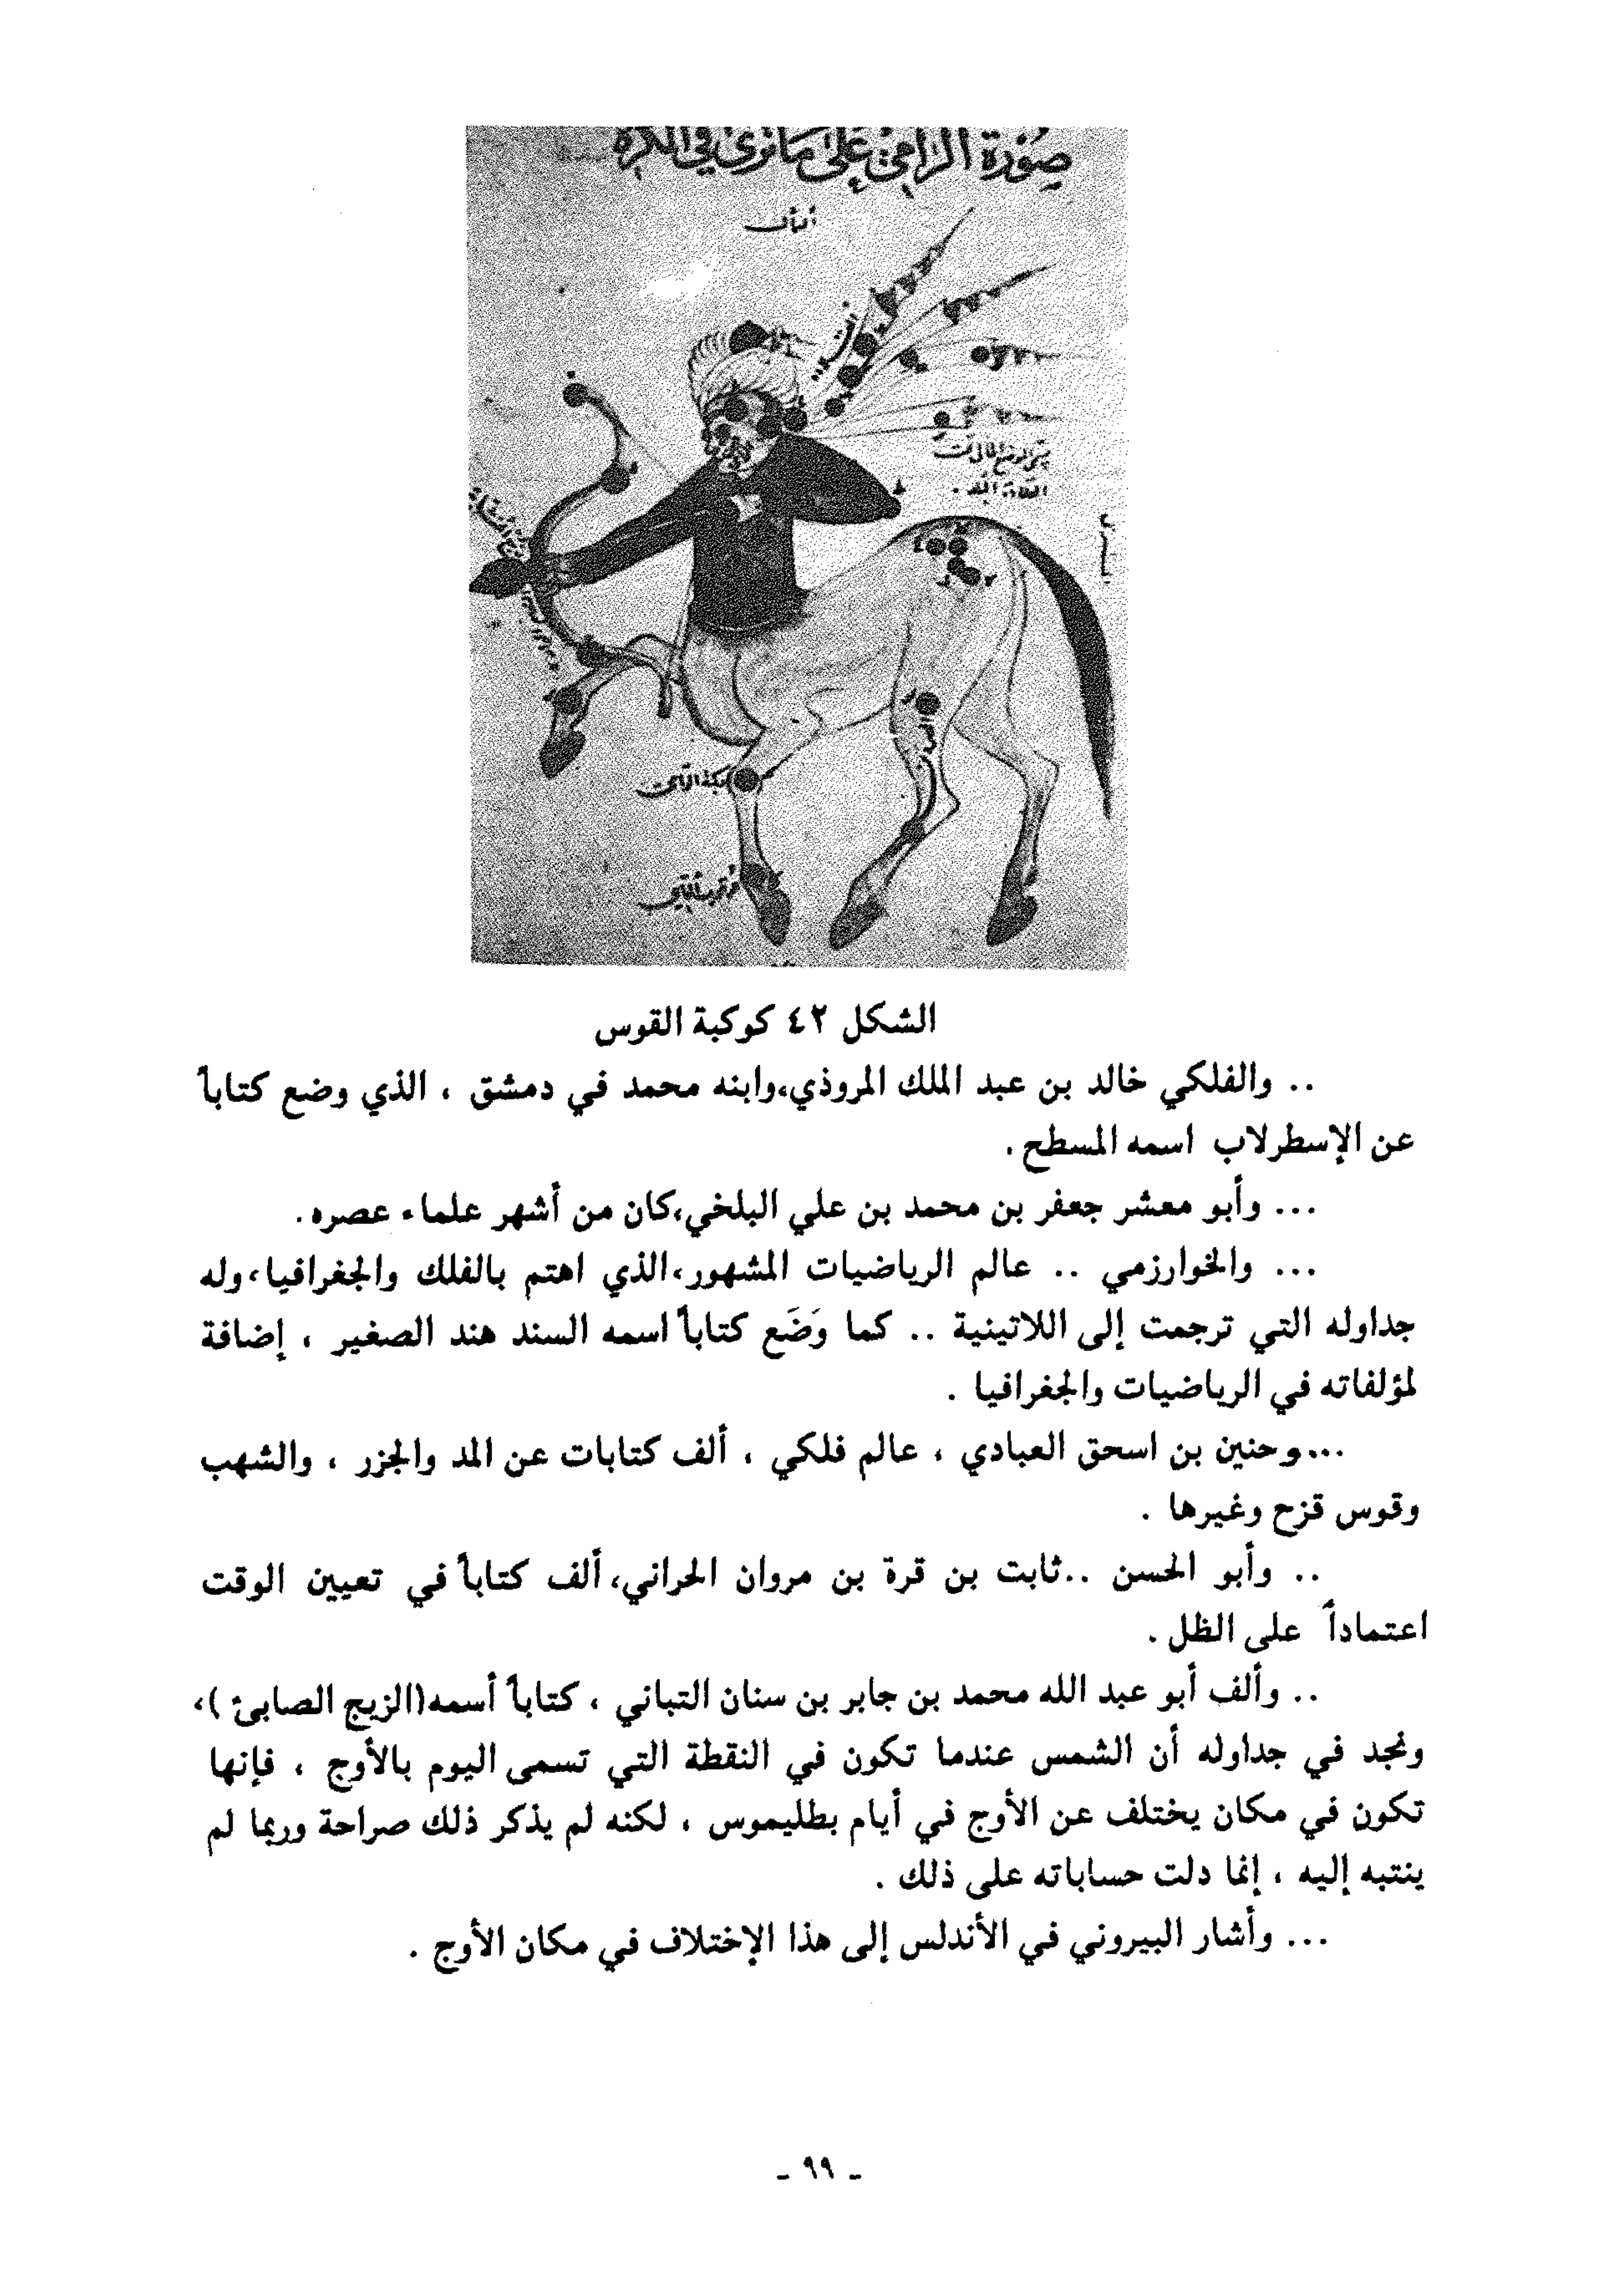 صورة الرامي على ما ترى في الكرة
الشكل ٤٢ كوكبة القوس
.. والفلكي خالد بن عبد الملك المروذي،وابنه محمد في دمشق ، الذي وضع كتاباً
عن الإسطرلاب اسمه المسطح .
... وأبو معشر جعفر بن محمد بن علي البلخي،كان من أشهر علماء عصره .
... والخوارزمي .. عالم الرياضيات المشهور،الذي اهتم بالفلك والجغرافيا،وله
جداوله التي ترجمت إلى اللاتينية .. كما وَضَع كتاباً اسمه السند هند الصغير ، إضافة
لمؤلفاته في الرياضيات والجغرافيا .
...وحنين بن اسحق العبادي ، عالم فلكي ، ألف كتابات عن المد والجزر ، والشهب
وقوس قزح وغيرها .
.. وأبو الحسن ..ثابت بن قرة بن مروان الحراني،ألف كتاباً في تعيين الوقت
اعتماداً على الظل .
.. وألف أبو عبد الله محمد بن جابر بن سنان التباني ، كتاباً أسمه(الزيج الصابئ )،
ونجد في جداوله أن الشمس عندما تكون في النقطة التي تسمى اليوم بالأوج ، فإنها
تكون في مكان يختلف عن الأوج في أيام بطليموس ، لكنه لم يذكر ذلك صراحة وربما لم
ينتبه إليه ، إنما دلت حساباته على ذلك .
... وأشار البيروني في الأندلس إلى هذا الإختلاف في مكان الأوج .
ـ ٩٩ ـ